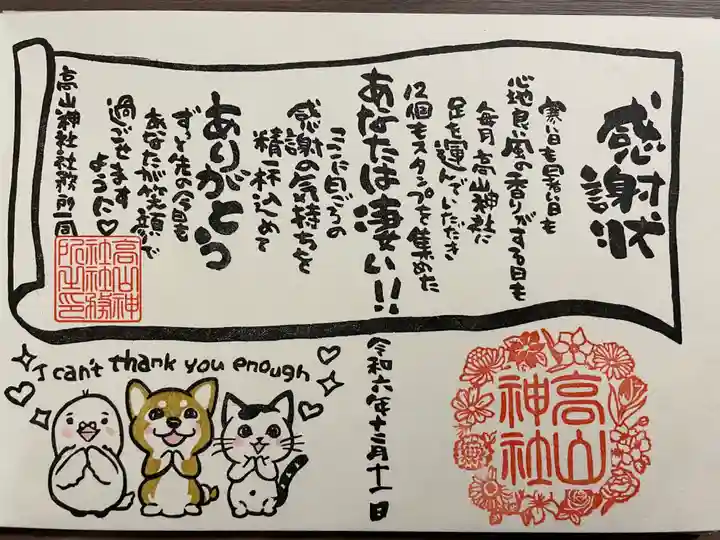 感謝状
寒い日も暑い日も
心地良い風の香りがする日も
毎月高山神社に
足を運んでいただき
12個もスタンプを集めた
あなたは凄い!!
ここに日ごろの
感謝の気持ちを
精一杯込めて
ありがとう
ずっと先の今日も
あなたが笑顔で
過ごせます
ように♡
高山神社社務所一同
高山神
社社務
所之印
I can't thank you enough
令和六年十二月十一日
高山
神社